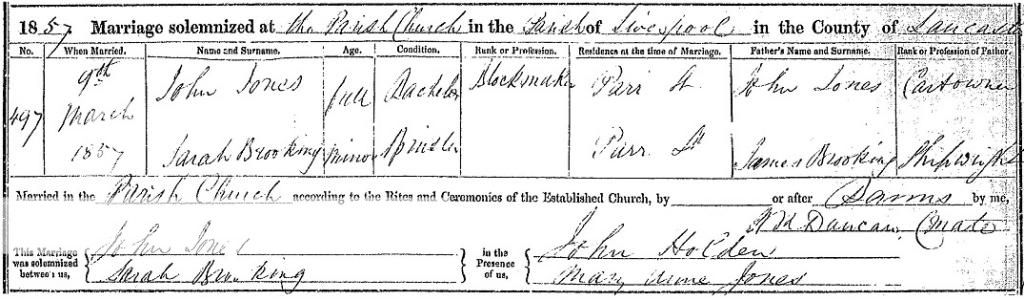 1857. Marriage solemnized at the Parish Church in the Parish of Liverpool in the County of Lancaster
No. When Married. Name and Surname. Age. Condition. Rank or Profession. Residence at the time of Marriage. Father's Name and Surname. Rank or Profession of Father.
497 9th March 1857 John Jones full Bachelor Blockmaker Parr St. John Jones Cartowner
Sarah Brooking minor Parr St James Brooking Shipwright
Married in the Parish Church according to the Rites and Ceremonies of the Established Church, by or after Banns by me,
Duncan
This Marriage was solemnized between us, John Jones Sarah Brooking in the Presence of us, John Holden Mary Anne Jones